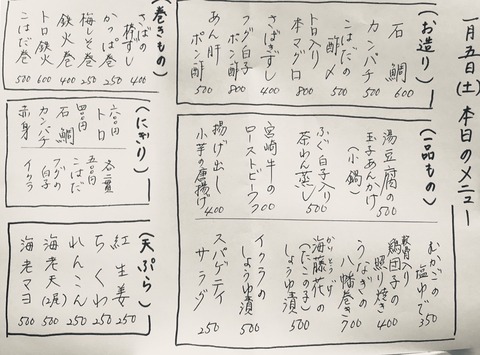 一月五日(土)本日のメニュー
(お造り)
石鯛 600
カンパチ 500
こはだの
酢〆 500
トロ入り
本マグロ 800
さばきずし 400
フグ白子
ポン酢 800
あん肝
ポン酢 500
(一品もの)
湯豆腐の
玉子あんかけ
(小鍋) 500
ふぐ白子入り
茶わん蒸し 500
宮崎牛の
ローストビーフ 700
揚げ出し
小芋の唐揚げ 400
むかごの
塩ゆで 350
軟骨入り
鶏団子の
照り焼き 400
うなぎの
八幡巻き 700
海藤花の
しょうゆ漬
(たこの子) 500
イクラの
しょうゆ漬 500
スパゲティ
サラダ 250
(巻きもの)
さばの
棒ずし 400
かっぱ巻 250
梅しそ巻 250
鉄火巻 400
トロ鉄火 600
こはだ巻 500
(にぎり)
各二貫
六〇〇円
トロ
四〇〇円
石鯛
カンパチ
赤身
五〇〇円
こはだ
フグの
白子
イクラ
(天ぷら)
紅生姜 250
ちくわ 250
れんこん 250
海老天(2尾) 500
海老マヨ 500